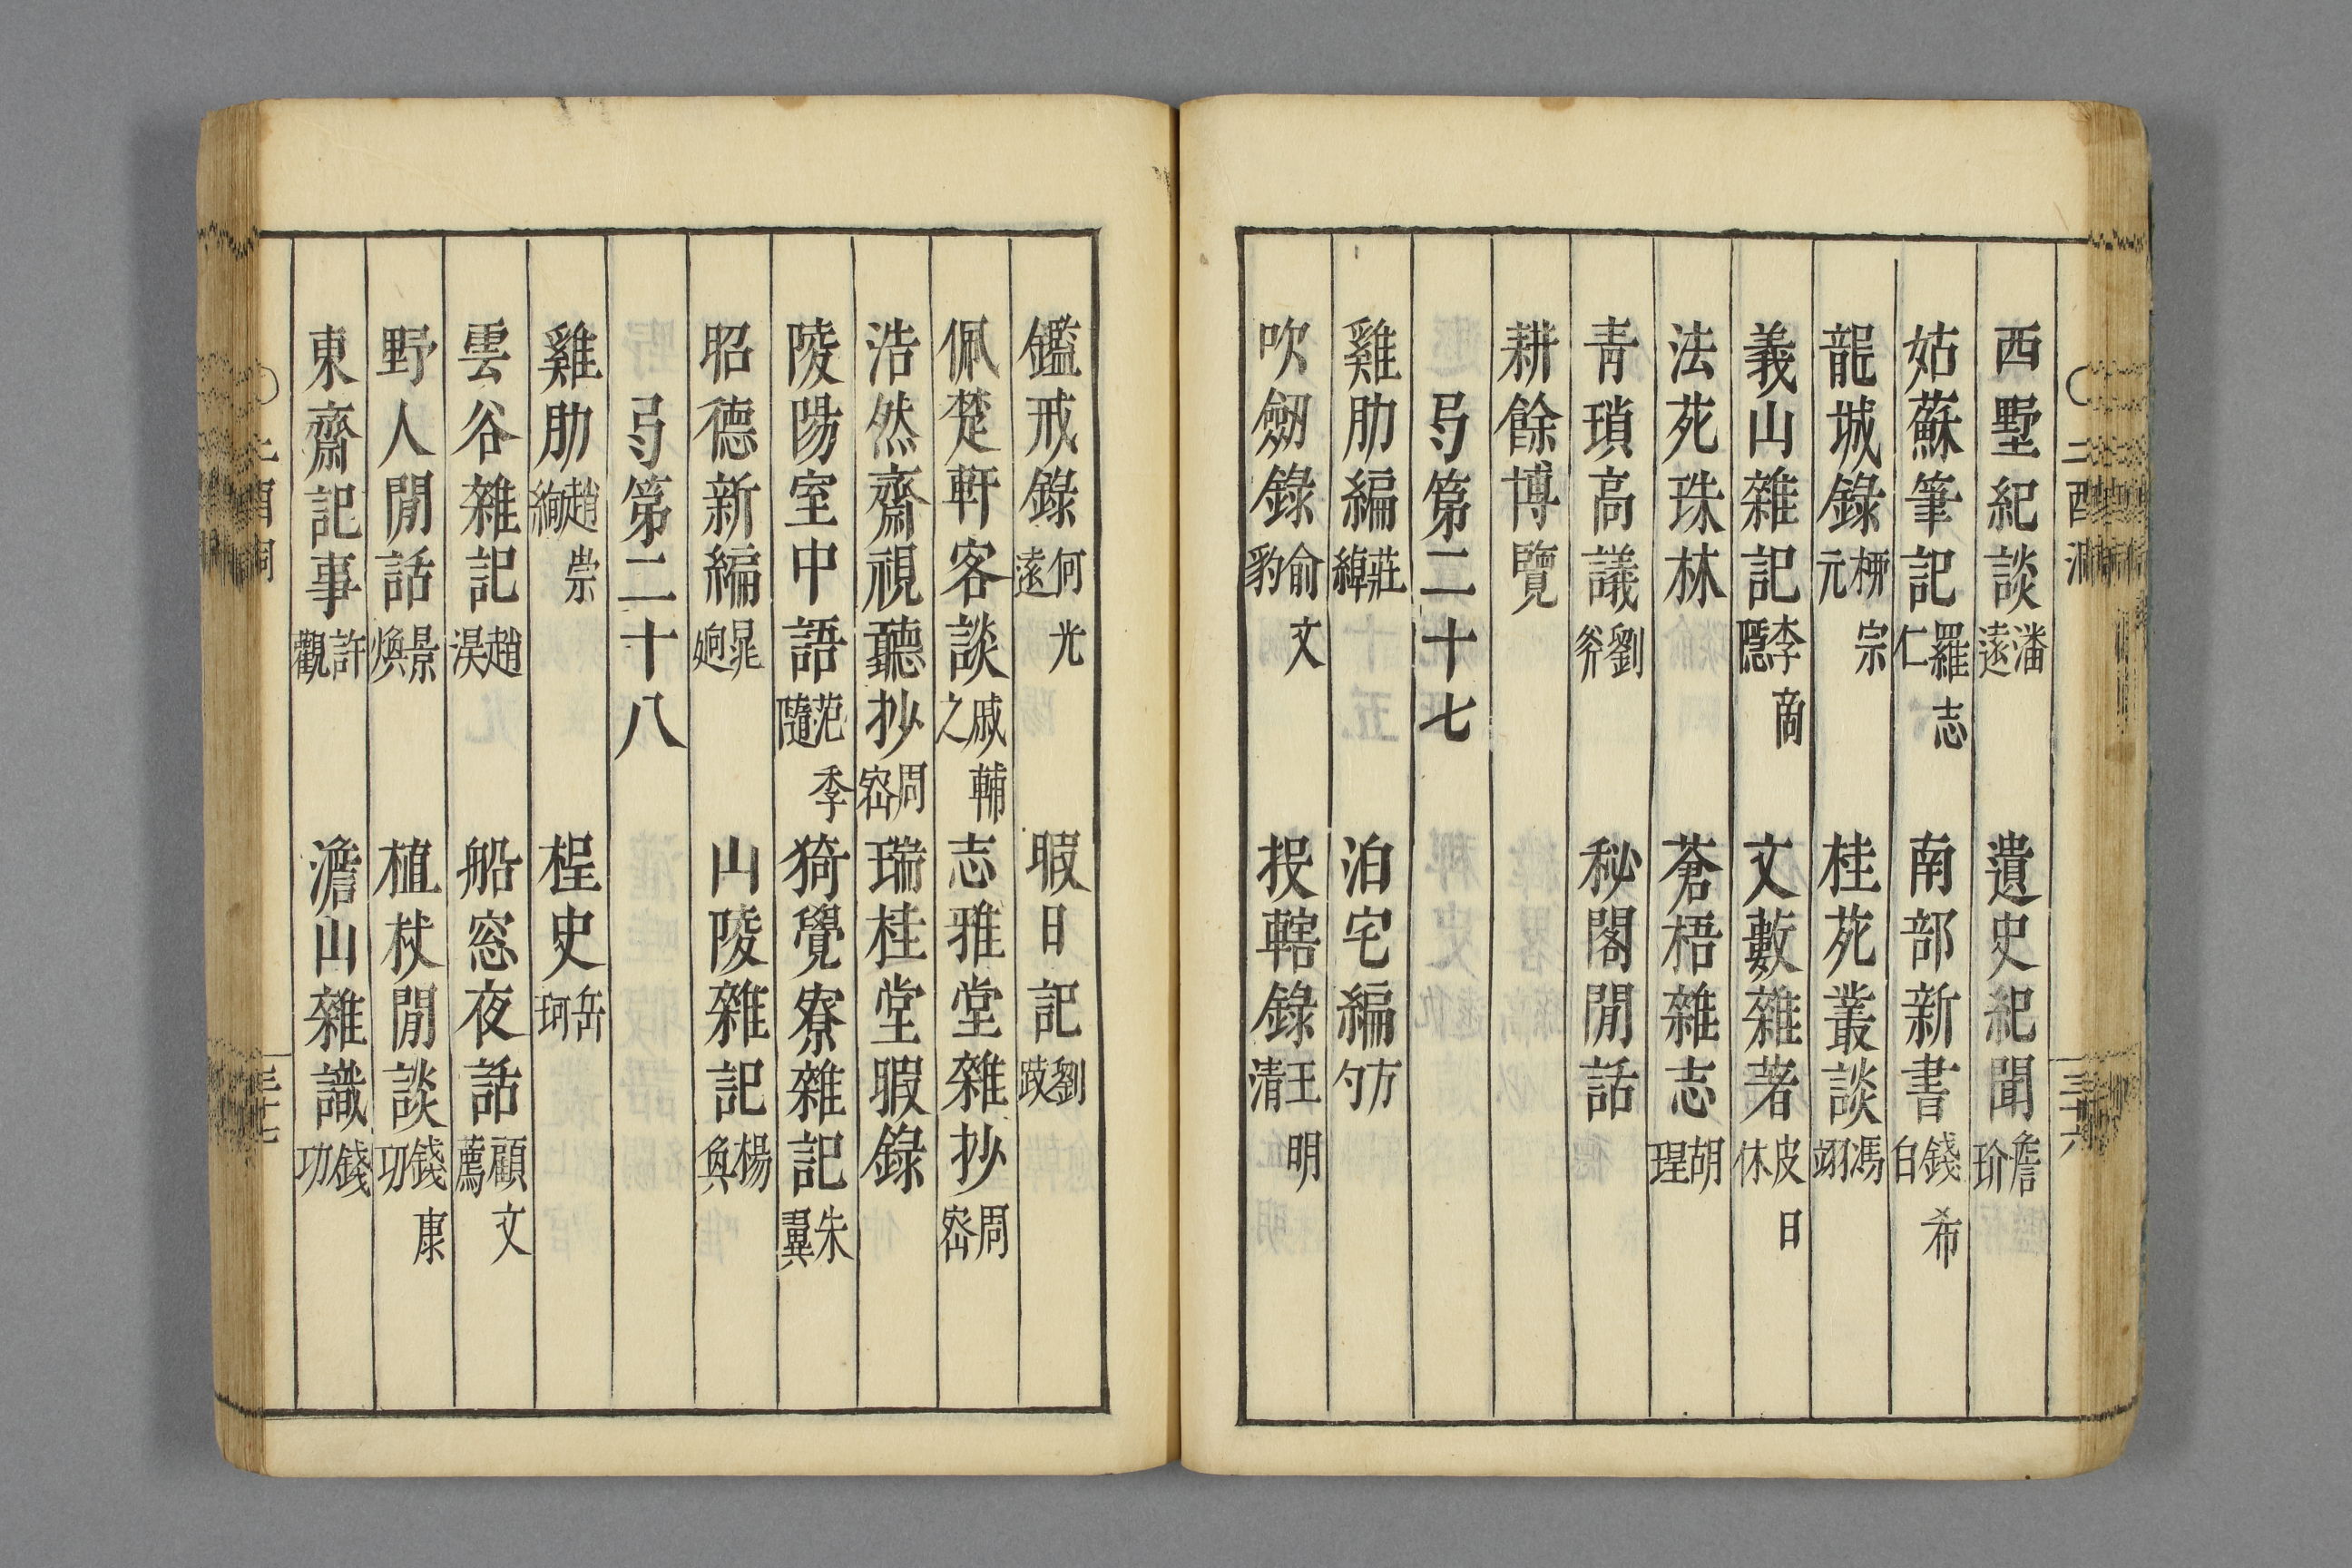 西墅紀談潘遠 遺史紀聞詹玠
姑蘇筆記羅志仁 南部新書錢希白
龍城錄柳宗元 桂苑叢談馮翊
義山雜記李商隱 文藪雜著皮日休
法苑珠林 蒼梧雜志胡珵
青瑣高議劉斧 秘閣閒話
耕餘博覽
弓第二十七
雞肋編莊綽 泊宅編方勺
吹劒錄俞文豹 投轄錄王明清
鑑戒錄何光遠 暇日記劉跂
佩楚軒客談戚輔之 志雅堂雜抄周密
浩然齋視聽抄周密 瑞桂堂暇錄
陵陽室中語范季隨 猗覺寮雜記朱翼
昭德新編晁迥 山陵雜記楊奐
弓第二十八
雞肋趙崇絢 桯史岳珂
雲谷雜記趙淏 船窓夜話顧文薦
野人閒話景煥 植杖閒談錢康功
東齋記事許觀 澹山雜識錢功